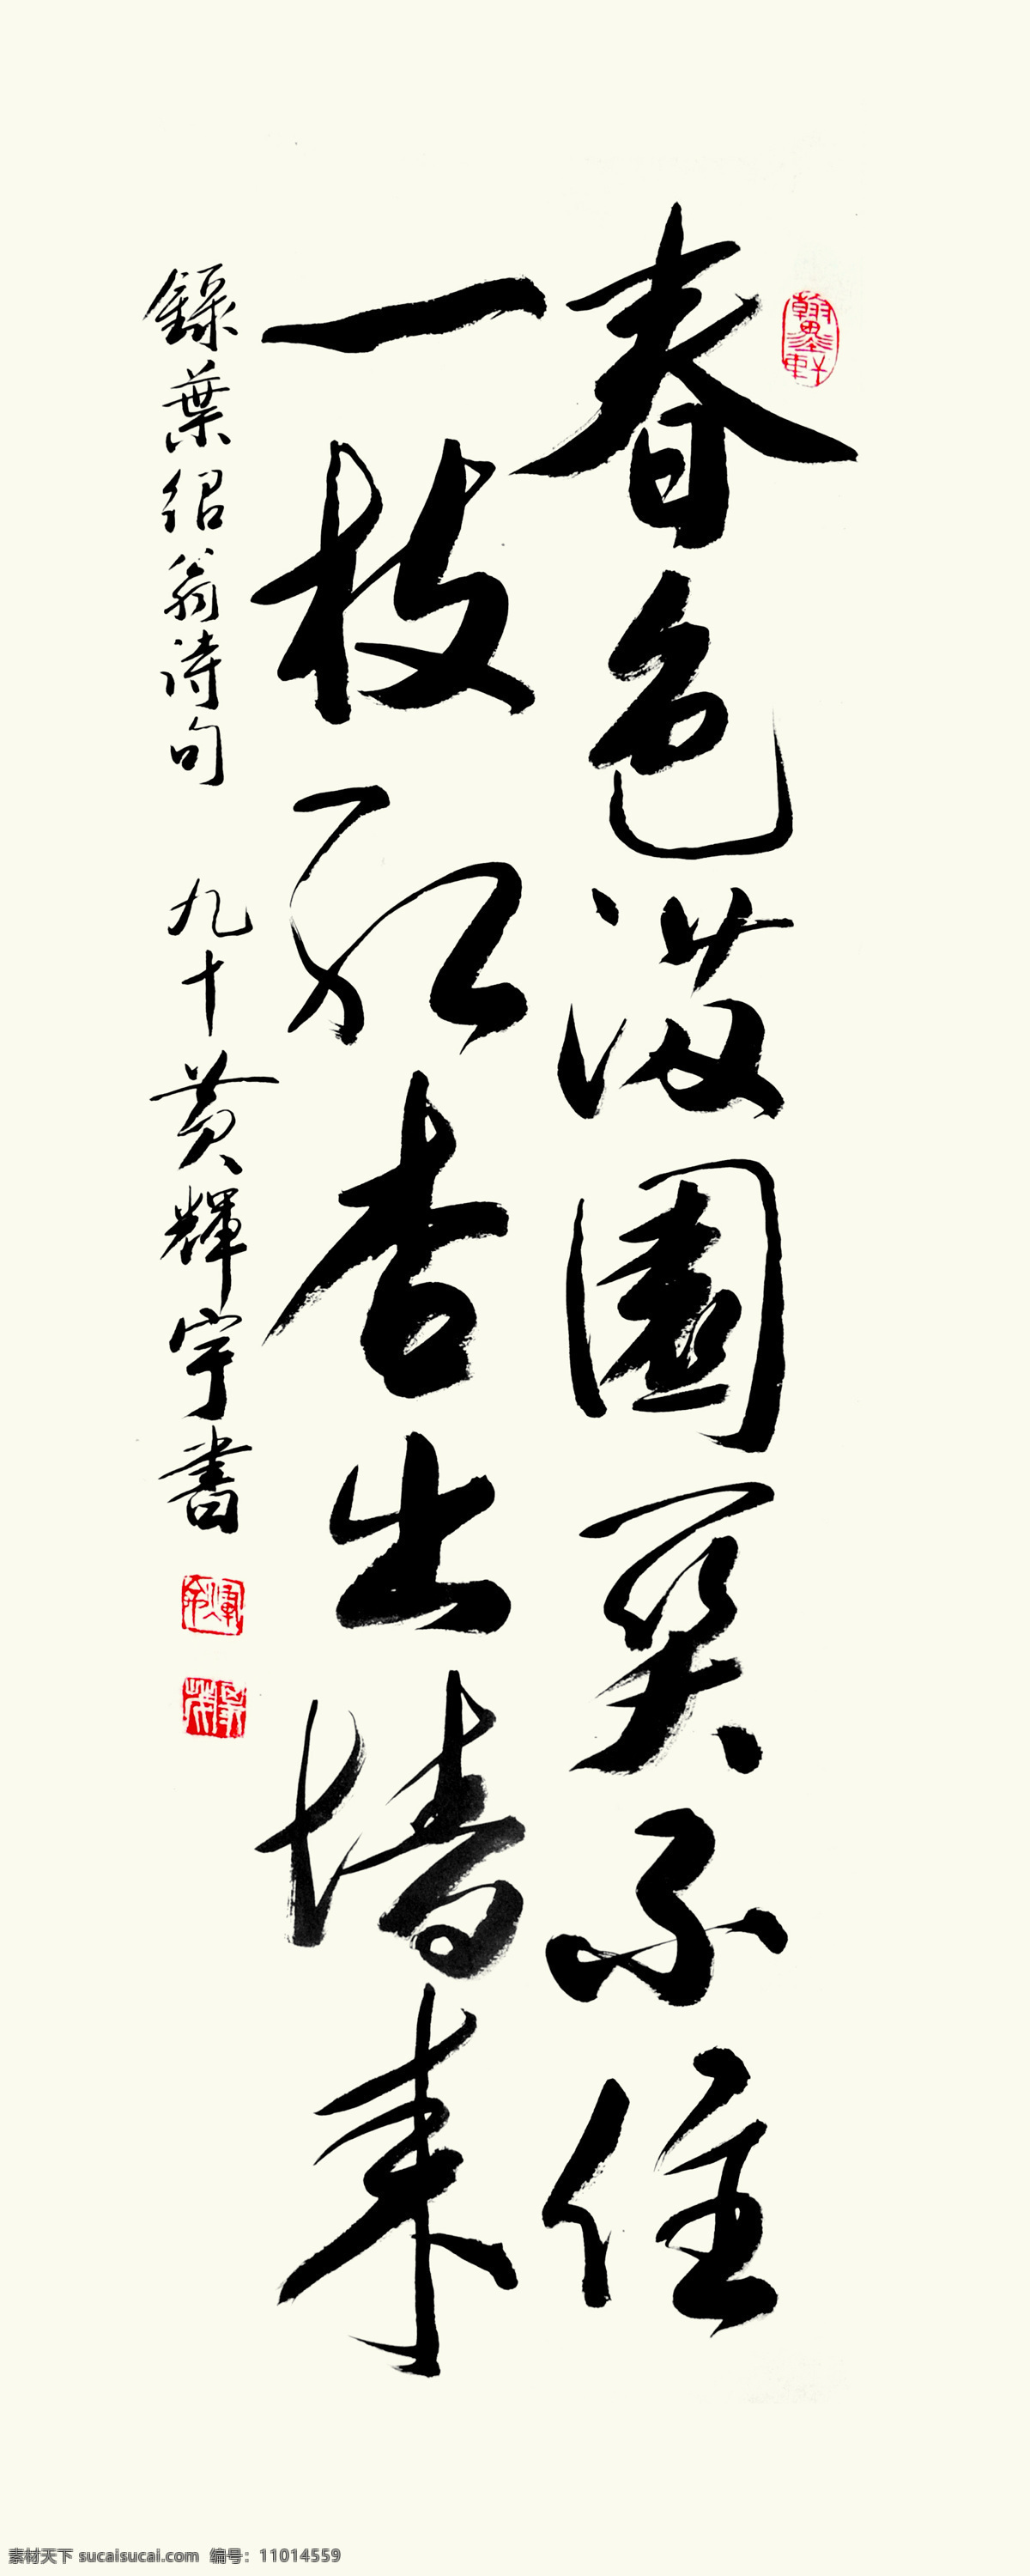 春色满園関不住
一枝红杏出墙来
録葉绍翁诗句 九十黄輝宇書
翰墨軒
素材天下 sucaisucai.com 编号：11014559